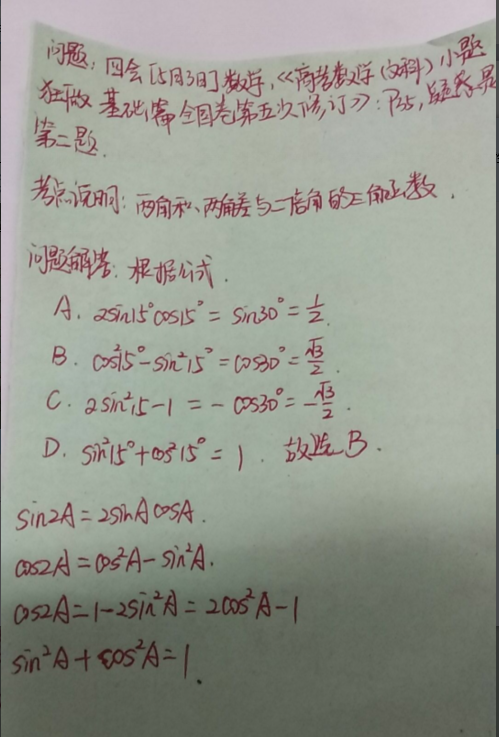 问题：四会[5月3日]数学，《高考数学(文科)小题
狂做 基础篇 全国卷第五次修订》：P35，疑难
第二题．
考点说明：两角和、两角差与二倍角的三角函数．
问题解答：根据公式．
A. 2sin15°cos15°=sin30°=1/2.
B. cos²15°-sin²15°=cos30°=√3/2.
C. 2sin²15-1=-cos30°=-√3/2.
D. sin²15°+cos²15°=1. 故选B.
sin2A=2sinAcosA.
cos2A=cos²A-sin²A.
cos2A=1-2sin²A=2cos²A-1
sin²A+cos²A=1.